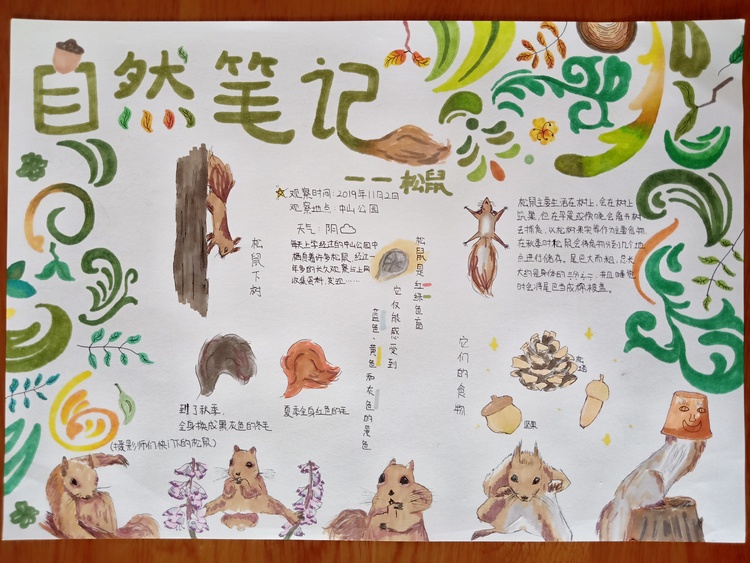 自然笔记
——松鼠
观察时间:2019年11月2日
观察地点:中山公园
天气:阴
每天上学经过的中山公园中
栖息着许多松鼠,经过一
年多的长久观察与上网
收集资料,发现……
松鼠下树
松鼠是红绿色盲
它仅能感受到
蓝色、黄色和灰色的景色
松鼠主要生活在树上,会在树上
筑巢,但在早晨或傍晚会离开树
去捕食,以松树果实等作为主要食物,
在秋季时松鼠会将食物分到几个地
点进行储存。尾巴大而粗,尾长
大约是身体的
时会将尾巴当成棉被盖。
到了秋季,
全身换成黑灰色的冬毛
夏季全身红色的毛
它们的食物
松塔
坚果
(摄影师们快门下的松鼠)